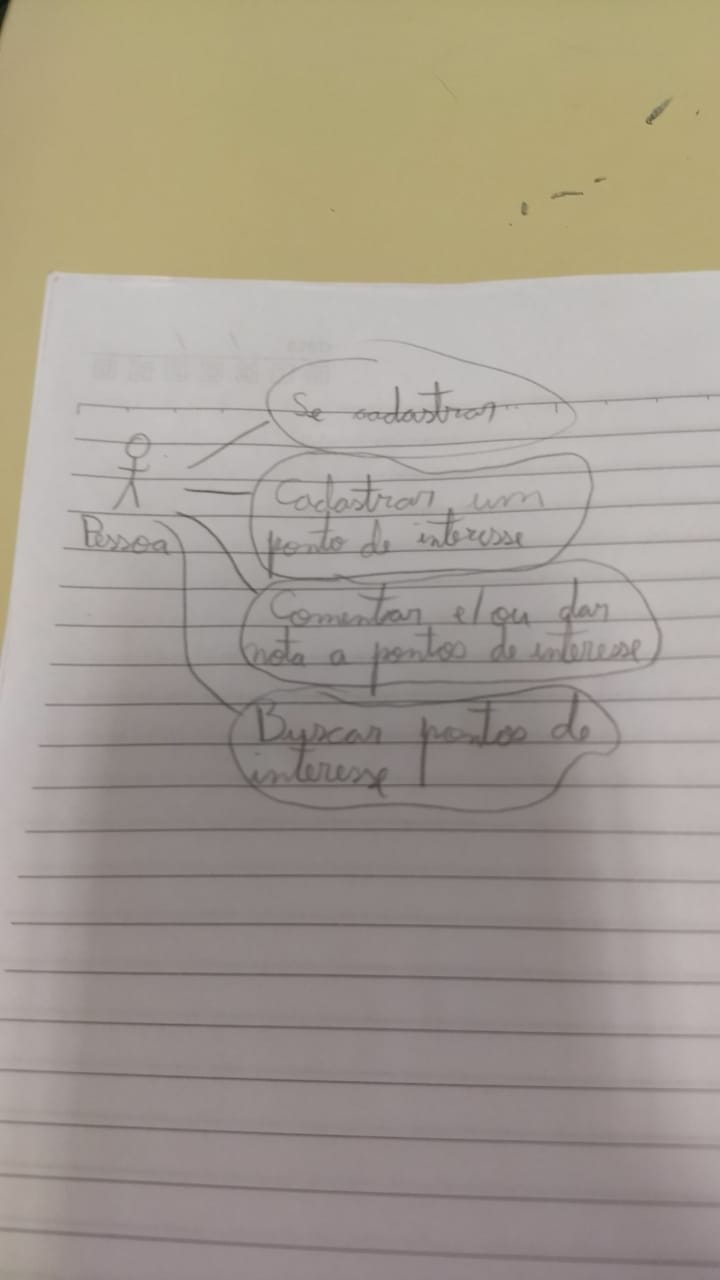 Se cadastrar
Cadastrar um
ponto de interesse
Pessoa
Comentar e/ou dar
nota a pontos de interesse
Buscar pontos de
interesse